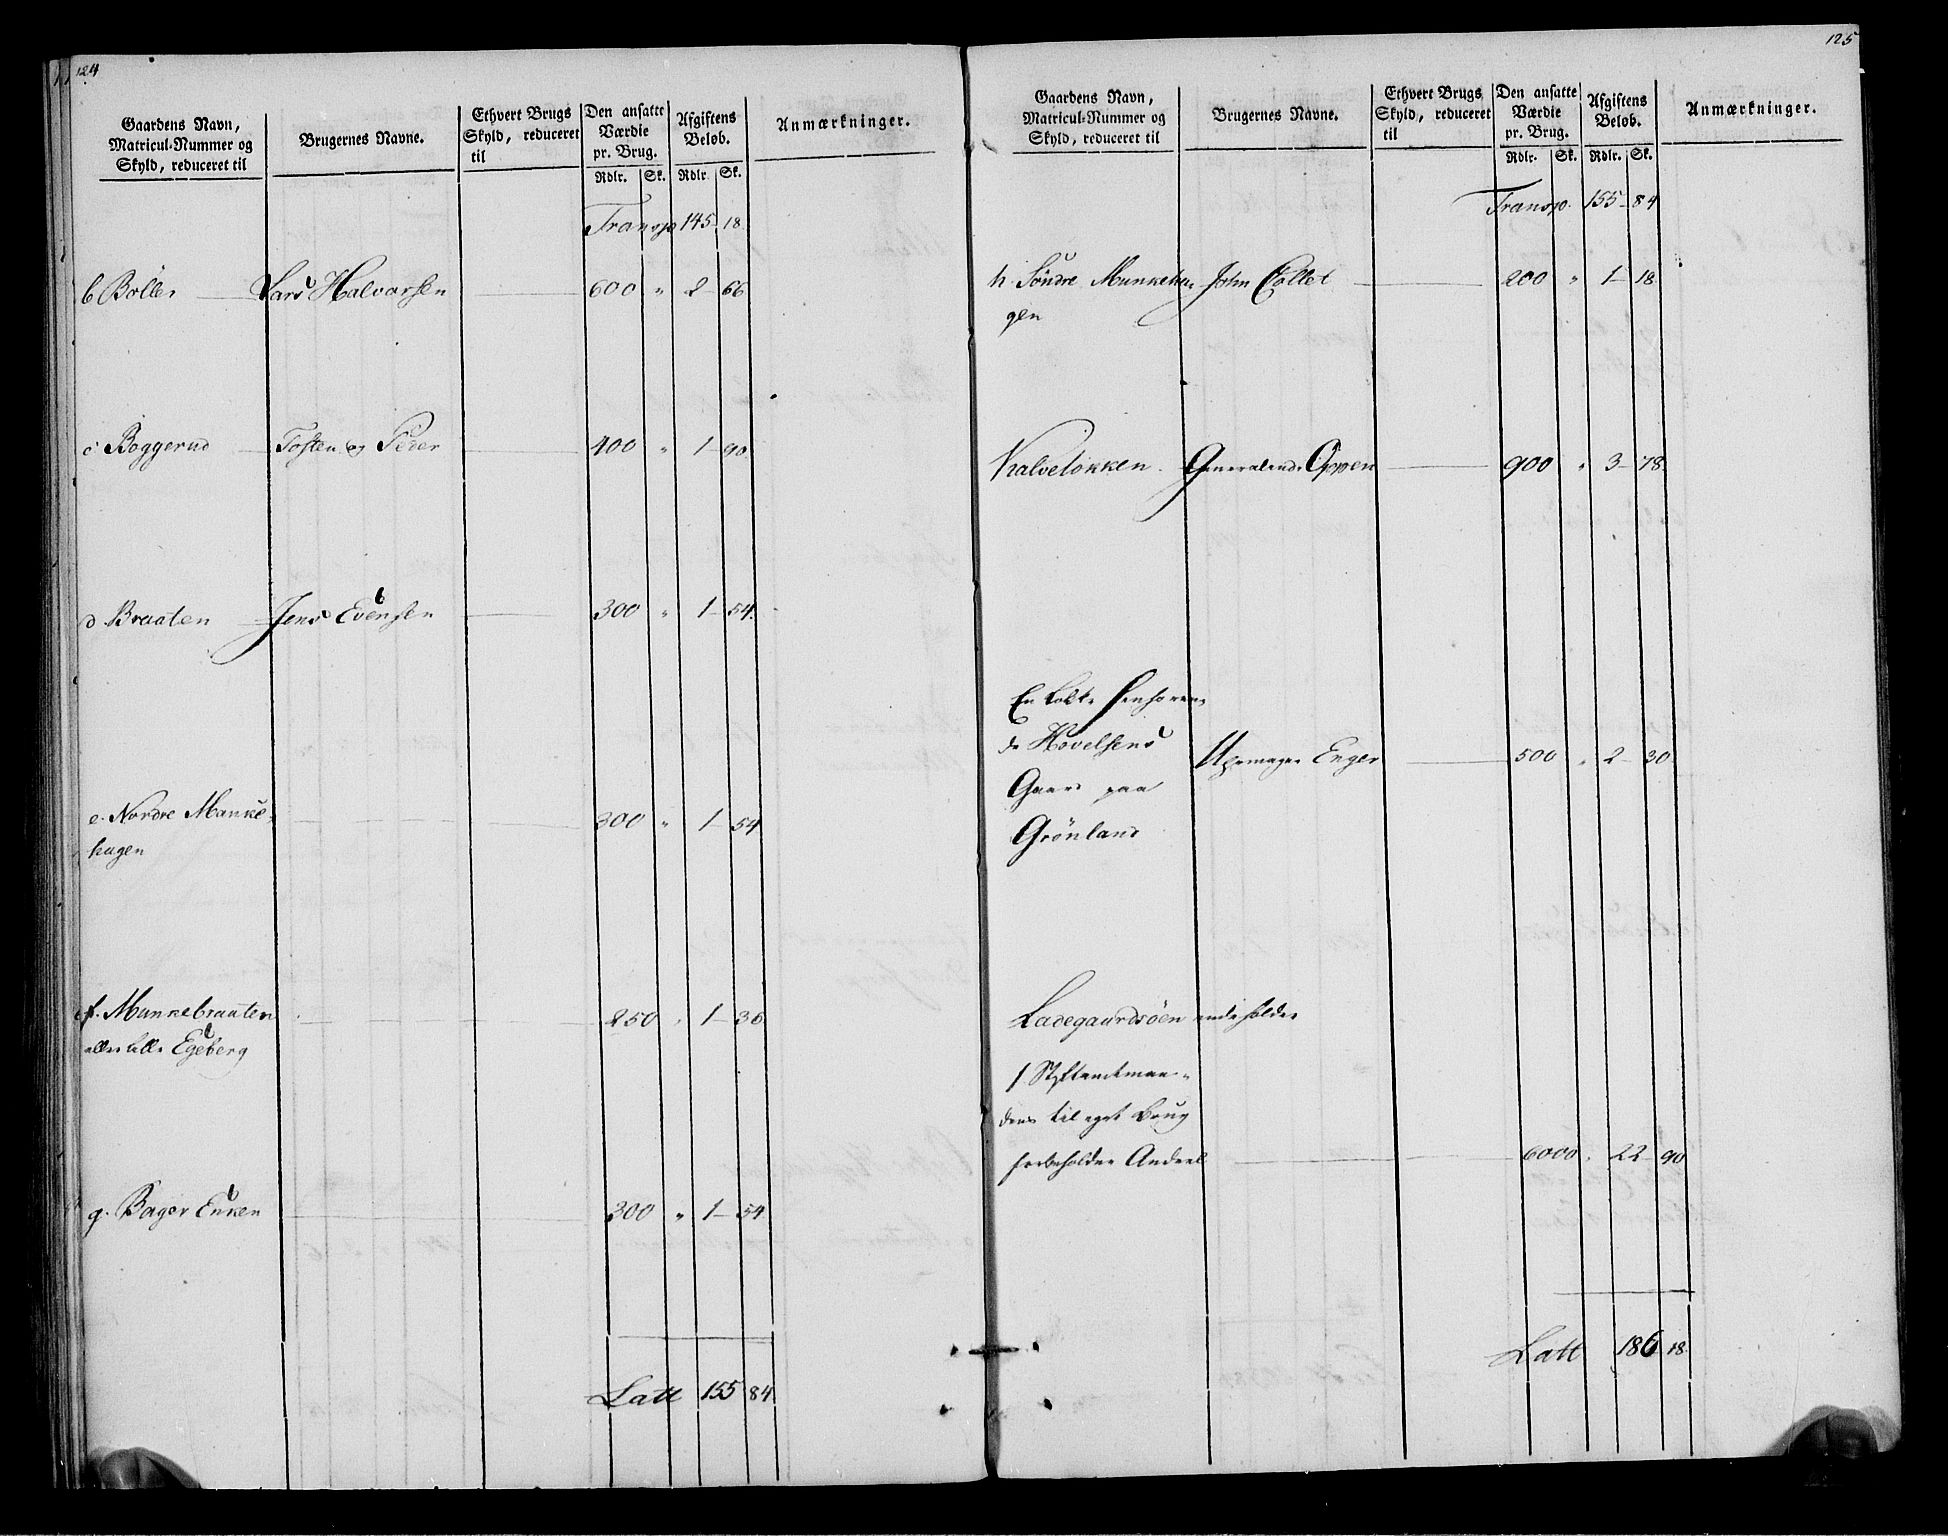 124
Gaardens Navn, Matricul-Nummer og Skyld, reduceret til
Brugernes Navne.
Ethvert Brugs Skyld, reduceret til
Den ansatte Værdie pr. Brug.
Afgiftens Beløb.
Anmærkninger.
Rdlr. Sk. Rdlr. Sk.
Transp 145 18
b Boller Lars Halvorsen 600 " 2 66
c Boggerud Tosten og Peder 400 " 1 90
d. Braaten Jens Evensen 300 " 1 54
e. Nordre Munke-
hagen 300 " 1 54
f. Munkebraaten 250 " 1 36
eller lille Egeberg
g. Bager Enken 300 " 1 54
Latt 155 84
125
Gaardens Navn, Matricul-Nummer og Skyld, reduceret til
Brugernes Navne.
Ethvert Brugs Skyld, reduceret til
Den ansatte Værdie pr. Brug.
Afgiftens Beløb.
Anmærkninger.
Rdlr. Sk. Rdlr. Sk.
Transp. 155 84
h. Søndre Munkeha- John Collet 200 " 1 18
gen
Kalveløkken Oppen 900 " 3 78
En Løkke
de Hovelsens
Uhrmager Enger 500 " 2 30
Gaard paa
Grønland
Ladegaardsøen
Stiftamtman-
dens til eget Brug
forbeholdne Andeel 6000 " 22 90
Latt 186 18